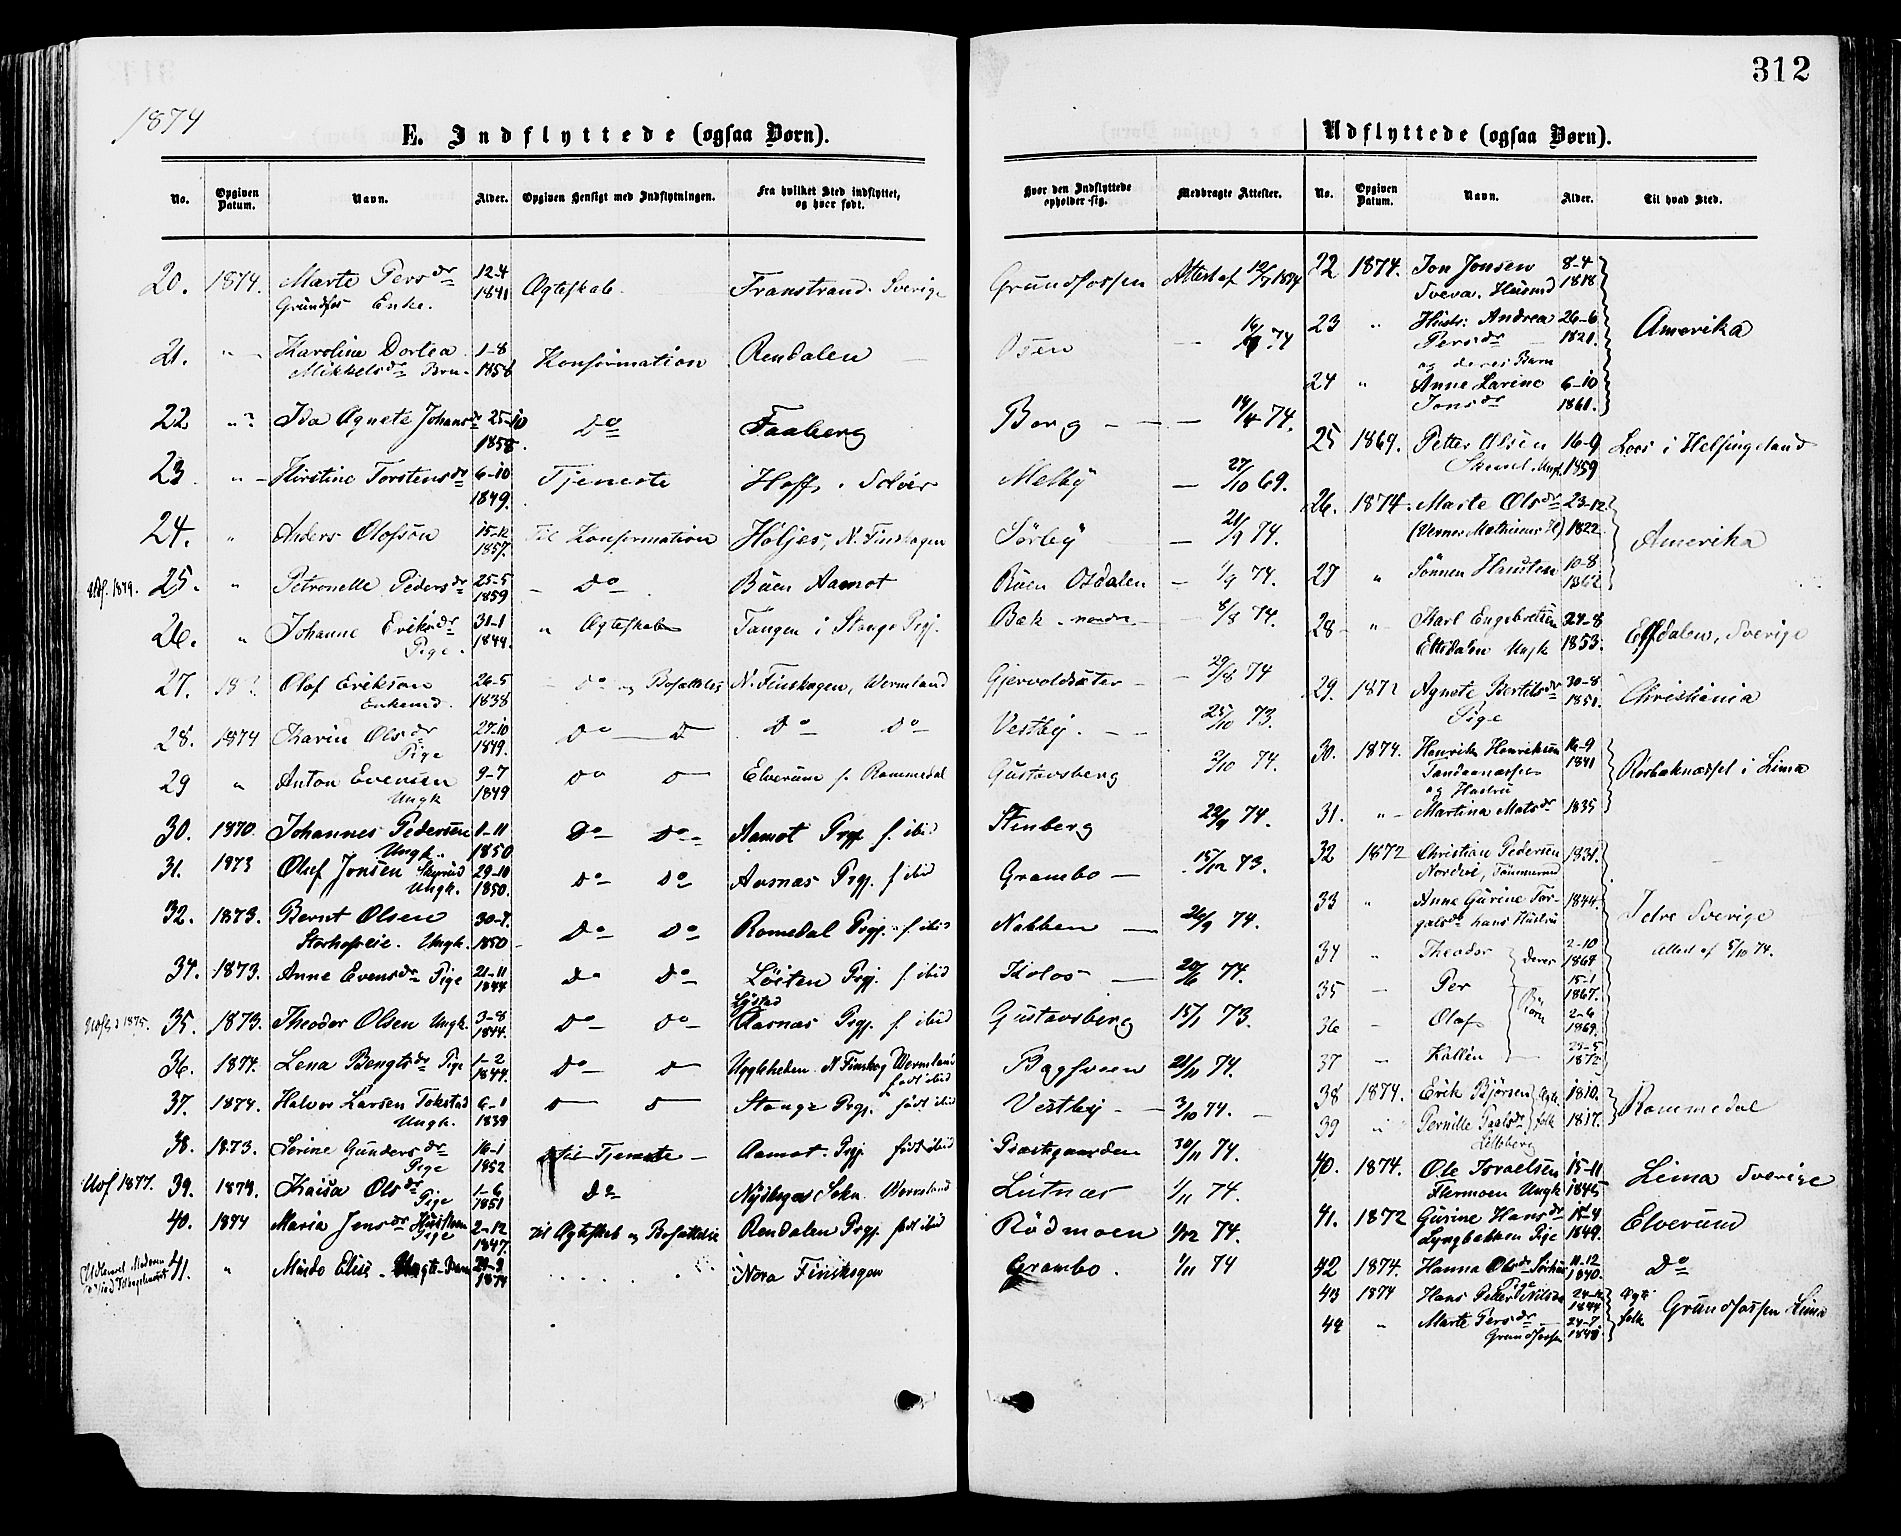 312
1874
E. Indflyttede (ogsaa Børn).
No. Opgiven Datum. Navn. Alder. Opgiven Hensigt med Indflytningen. Fra hvilket Sted indflyttet, og hvor født. Hvor den Indflyttede opholder sig. Medbragte Attester.
20. 1874. Marte Persdr 12-4 Ægteskab. Transtrand. Sverige Grundfossen Attest af 1874
Grundfos Enke. 1841
21. " Karoline Dortea 1-8 Konfirmation Rendalen Osen 74
Mikkelsdr 1858
22 " Ida Agnete Johansdr 25-10 Do Faaberg Berg 14/4 74.
1858.
23 " Kirstine Torstensdr 6-10 Tjeneste Hoff, Solør Melby 27/10 69.
1849.
24. " Anders Olofson 15-12 Til Konfirmation Høljes, N. Finskogen Sörby 21/9 74.
1857.
Udf. 1879. 25. " Petronelle Pedersdr 25-5 Do Büen Aamot Büen Osdalen 1/9 74.
1859
26. " Johanne Eriksdr 31-1 " Ægteskab Tangen i Stange Prgj. Bæk nordre 8/8 74.
Pige. 1849.
27. Olof Erikson 26-5 Do og Bosættelse N. Finskogen, Wermland Gjervoldsæter 29/8 74
Enkemd. 1838
28. 1874 Karin Olsdr 27-10 Do D Do Do Vestby. 25/10 73.
Pige 1849.
29 " Anton Evensen 9-7 Do D Elverum f. Rommedal Gustavsberg 3/10 74.
Ungk 1849
30. 1870. Johannes Pedersen 1-11 Do Do Aamot Prgj. f. ibid Stenberg 22/9 74.
Ungk. 1850
31. 1873 Oluf Jonsen 29-10 Do Do Aasnas Prgj. f. ibid Grambo 15/12 73.
Ungk. 1850.
32. 1873. Bernt Olsen 30-7 Do Do Romedal Prgj. f. ibid Nabben 26/9 74.
Ungk. 1850
34. 1873. Anne Evensdr Pige 21-11 Do Do Löiten Prgj. f. ibid Kolos 74.
1844
Udfl. i 1875. 35. 1873. Theodor Olsen Ungk. 3-8 Do Do Aasnas Prgj. f. ibid Gustavsberg 15/1 73.
1844.
36. 1874. Lena Bengtsdr Pige 1-2 Do D Uggleheden N. Finskog Wermland Bagsveen 21/11 74.
1844. født ibid
37. 1874. Halvor Larsen Tokstad 6-1 D D Stange Prgj. født ibid Vestby 3/10 74.
Ungk. 1839
38. 1873. Serine Gundersdr 16-1 til Tjeneste Aamot Prgj. født ibid Præstgaarden 30/11 74.
Pige 1852
Udf 1877. 39. 1874. Kaisa Olsdr 1-6 Do Wermland Lutnæs 1/11 74.
Pige 1851
40. 1874 Maria Jensdr 2-12 til Ægtesk og Bosættelse Rendalen Prgj. født ibid Rödmoen 1/12 74.
Pige 1847.
41. " 1874 Nora Finskogen Grambo. 1/11 74
Udflyttede (ogsaa Børn).
No. Opgiven Datum. Navn. Alder. Til hvad Sted.
22 1874. Jon Jonsen 8-4
Sveva. Husmd 1818
23 " Hustr: Andrea 26-6 Amerika
Persdr 1820.
og deres Barn
24 " Anne Larine 6-10
Jonsdr 1861.
25 1869. Petter Olsen 16-9 Loos i Helsingeland
Ungk. 1859
26. 1874. Marte Olsdr 23-12 Amerika
1822
27 " Sönnen 10-8
28 " Karl Engebretsen 24-8 Elfdalen, Sverige
Elfsdalen Ungk 1853.
29. 1872 Agnete Bertilsdr 30-8 Christiania
Pige 1850.
30. 1874. Henrik Henriksen 16-9 i Lima
1841
og Hustru
31. " Martina Matsdr 1835
32 1872 Christian Pedersen 1831.
33 " Anne Gürine Tor- 1844. Idre Sverige
galsdr hans Hustru
34 " Theodor deres 2-10 Attest af 5/10 74.
1864
35 - Per 15-1
Börn 1867.
36 - Olaf 2-6
1869.
37 - 25-5
1872
38 1874. Erik Bjørsen Ægte 1810. Rommedal
39 " Pernille Paalsdr folk 1817.
40. 1874. Ole Israelsen 15-11 Lima Sverige
Flermoen Ungk 1845
41. 1872 Gürine Hansdr Elverum
Lyngbakken Pige 1849.
42 1874. Hanna Olsdr 11-12 Do
Pige 1840.
43 1874 Hans Petter Nilsen Ægte Grundfossen Lima
1844 folk
44 " Marte Persdr 24-7
Grundfossen 1848